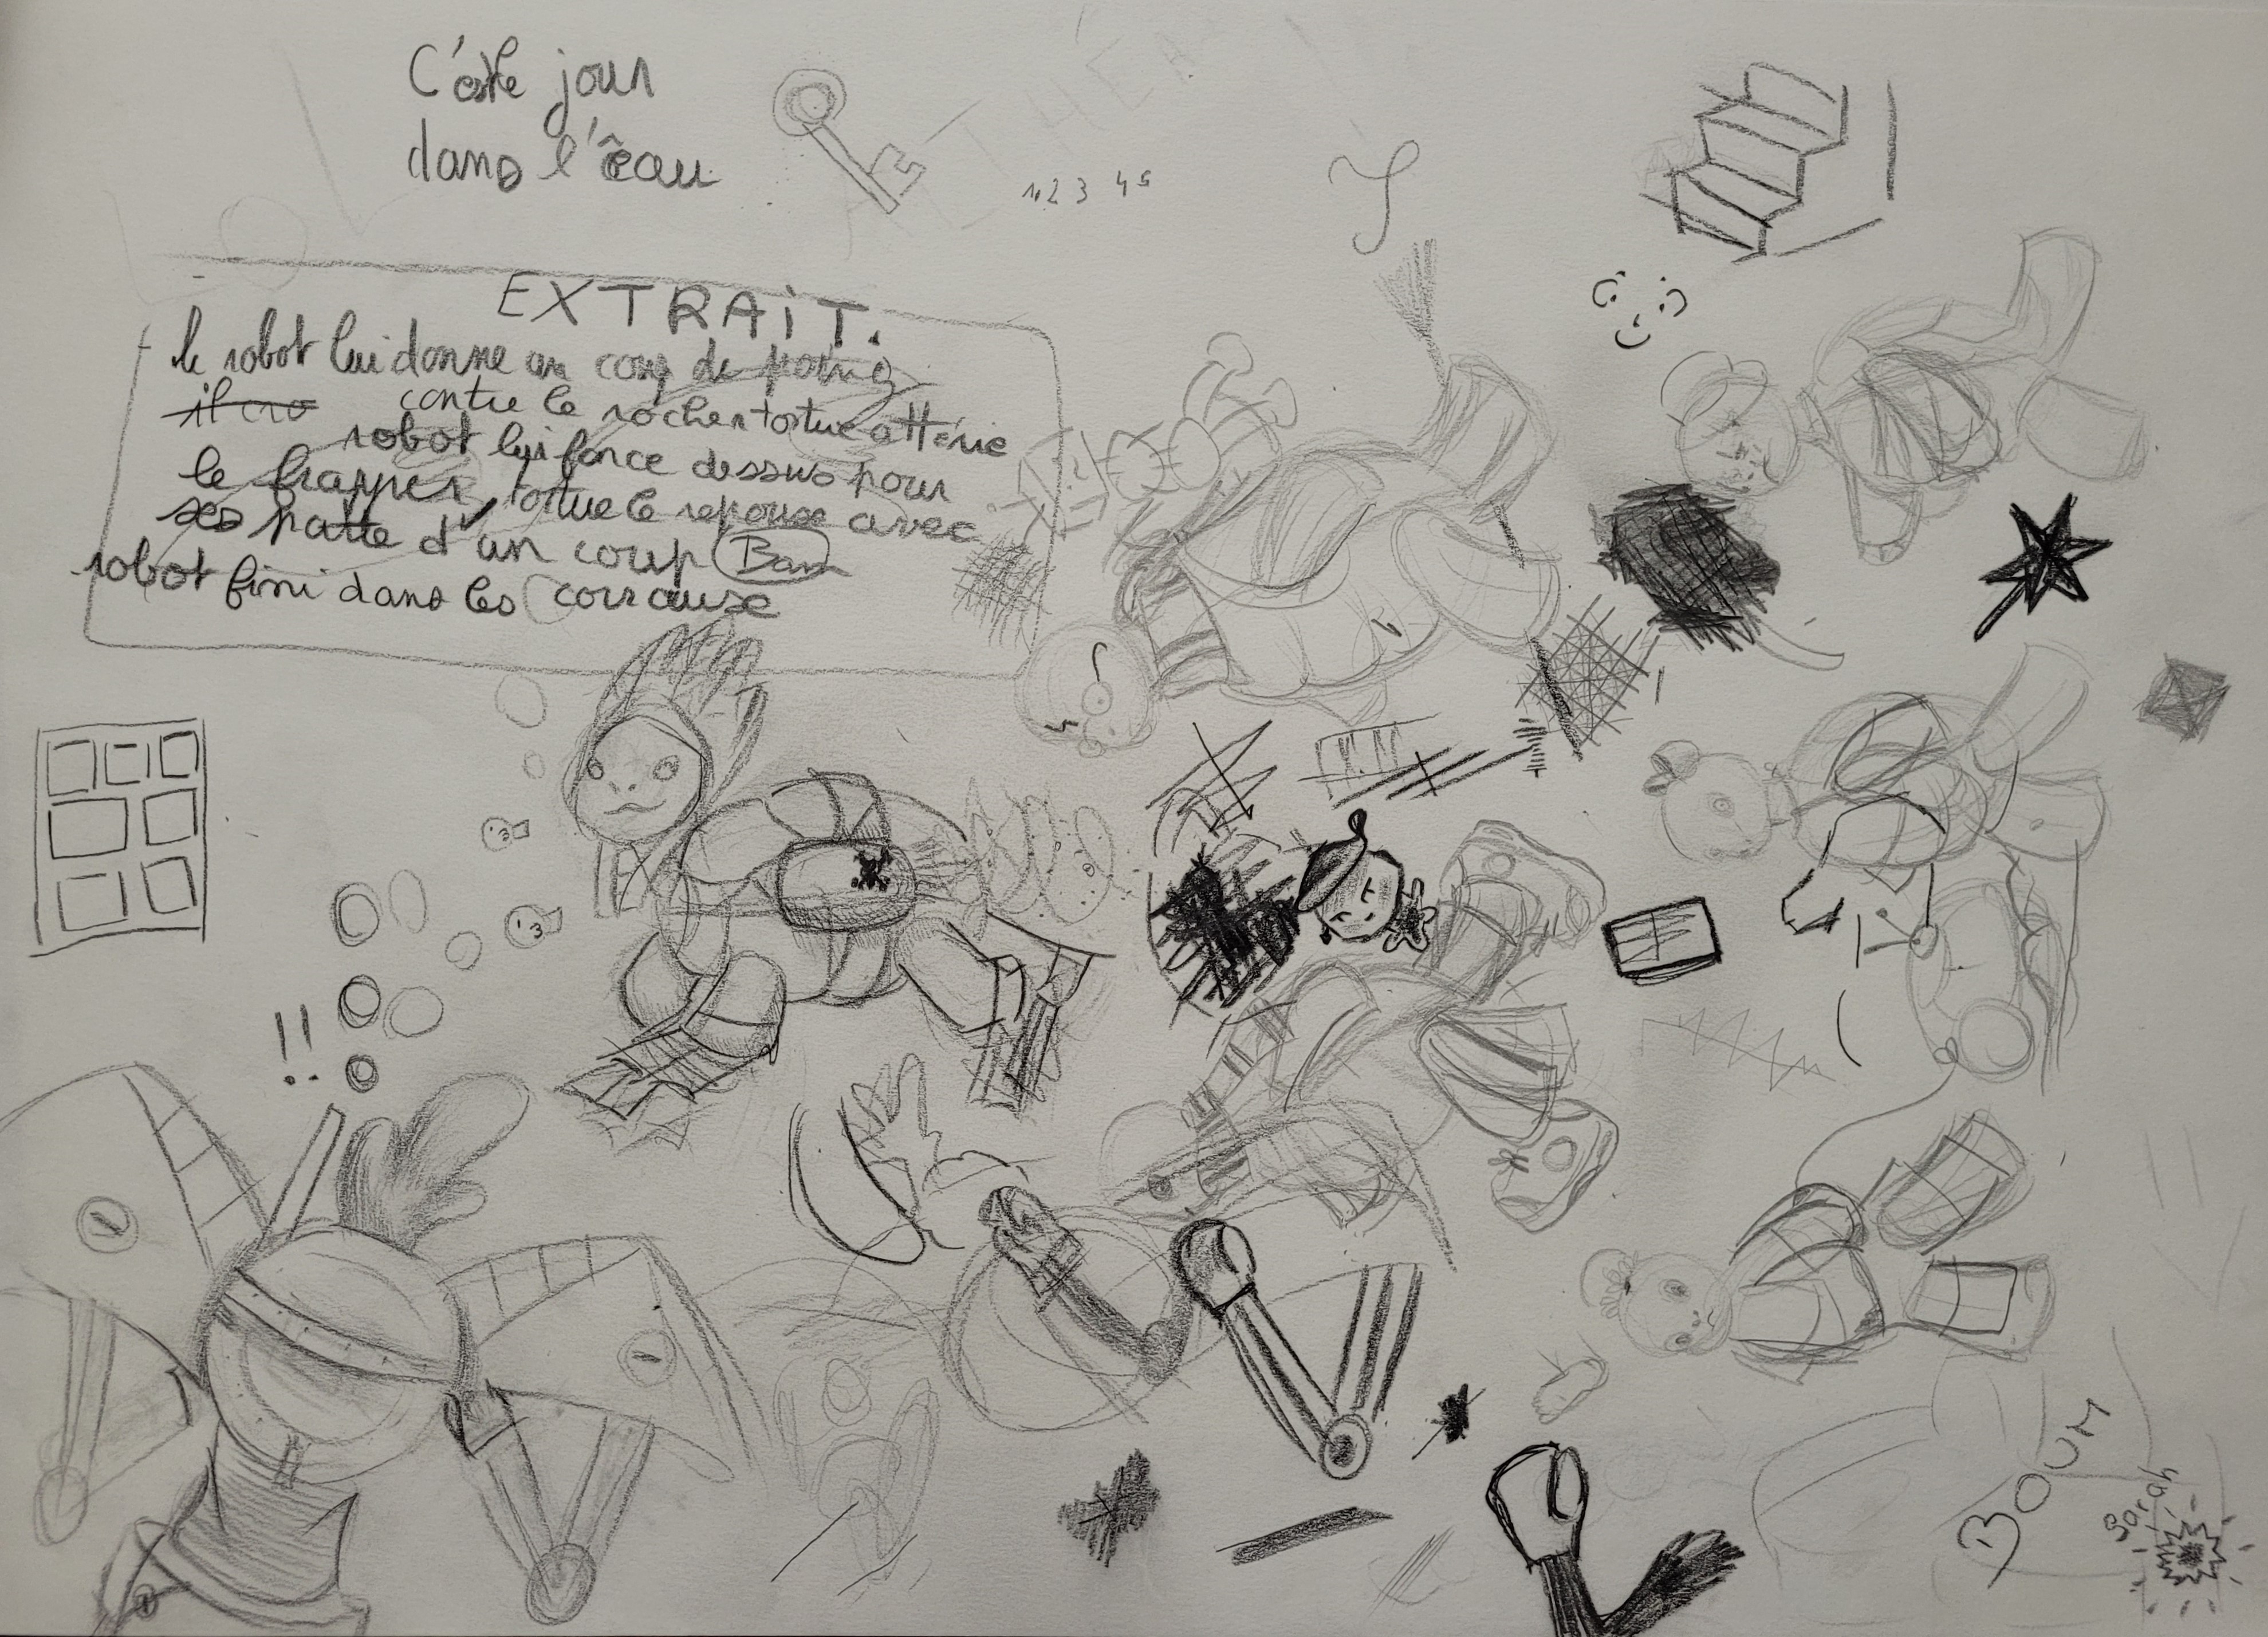 C'est le jour
dans l'eau
LOL
ALTHÉA
1 2 3 4 5
EXTRAIT.
le robot lui donne un coup de poing
il cro contre le rocher tortue attérie
robot lui fonce dessus pour
le frapper, tortue le repouse avec
ses patte d'un coup Bam
robot fini dans les
!!
BOUM
Sarah